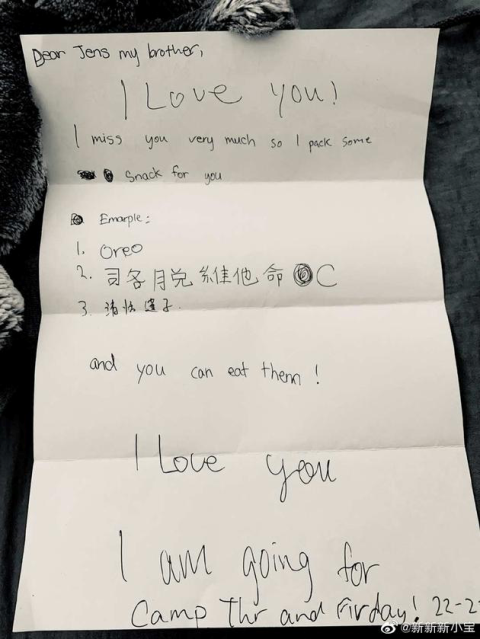 Dear Jens my brother,
I Love you!
I miss you very much so I pack some
Snack for you
Emarple:
1. Oreo
2. 司各月兑維他命 C
3. 清怯
and you can eat them!
I Love you
I am going for
Camp Thr and Firday! 22-2
@新新新小宝